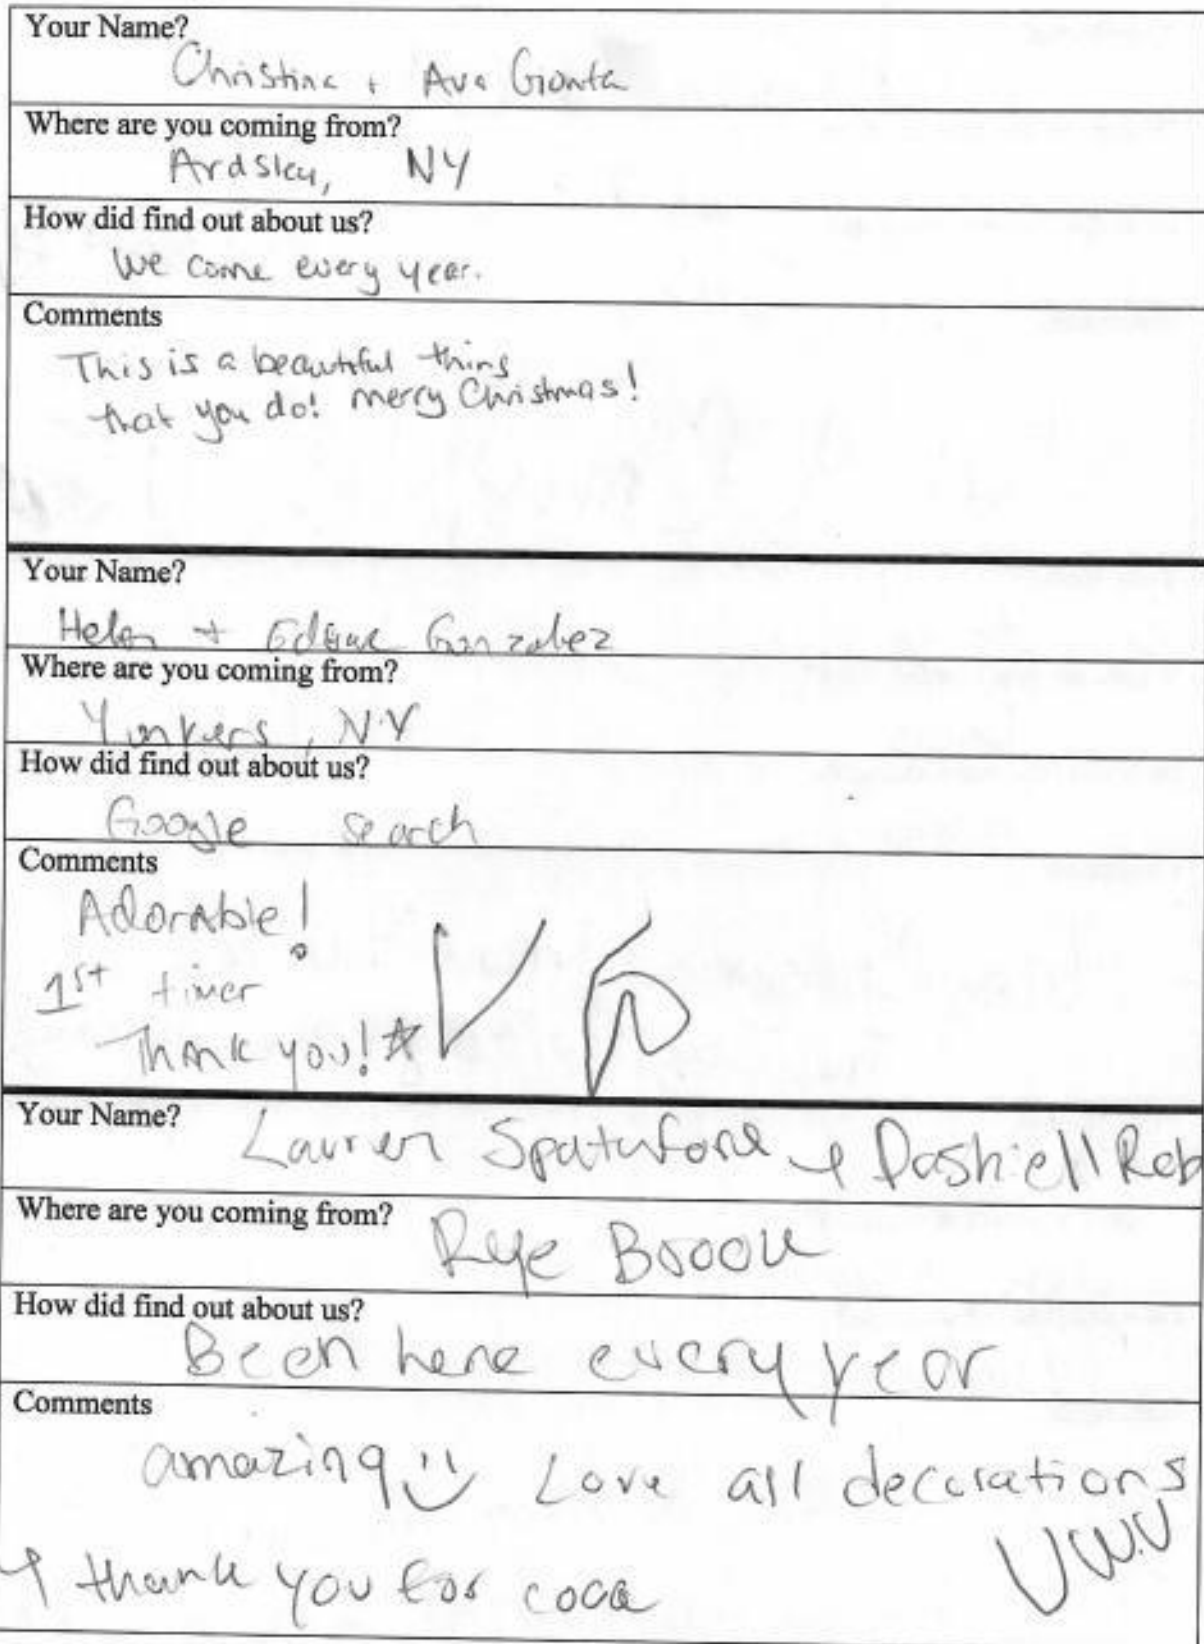 Your Name?
Christina + Ava Gionta
Where are you coming from?
Ardsley, NY
How did find out about us?
We come every year.
Comments
This is a beautiful thing
that you do! merry Christmas!
Your Name?
Helen + Edgar Gonzalez
Where are you coming from?
Yonkers, N.Y
How did find out about us?
Google search
Comments
Adorable!
1st timer
Thank you!
Your Name? Lauren Spatafore & Dashiell Rob
Where are you coming from? Rye Brook
How did find out about us?
Been here every year
Comments
amazing :) Love all decorations
& thank you for coca
UWU